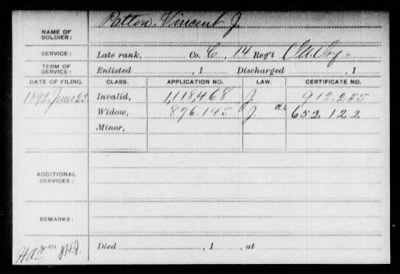 NAME OF SOLDIER: Patton, Vincent J.
SERVICE: Late rank, Co. C, 14 Reg't
TERM OF SERVICE: Enlisted , 1 Discharged , 1
DATE OF FILING. CLASS. APPLICATION NO. LAW. CERTIFICATE NO.
1892, June 22. Invalid, 1,118,468 J 912.255
Widow, 876.145 J 652.122
Minor,
ADDITIONAL SERVICES:
REMARKS:
Died , 1 , at